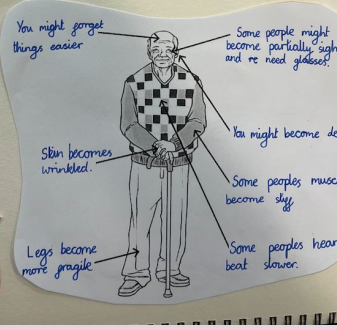 You might forget
things easier
Some people might
become partially sigh
and re need glasses.
You might become de
Skin becomes
wrinkled.
Some peoples musc
become stiff
Legs become
more fragile
Some peoples hear
beat slower.